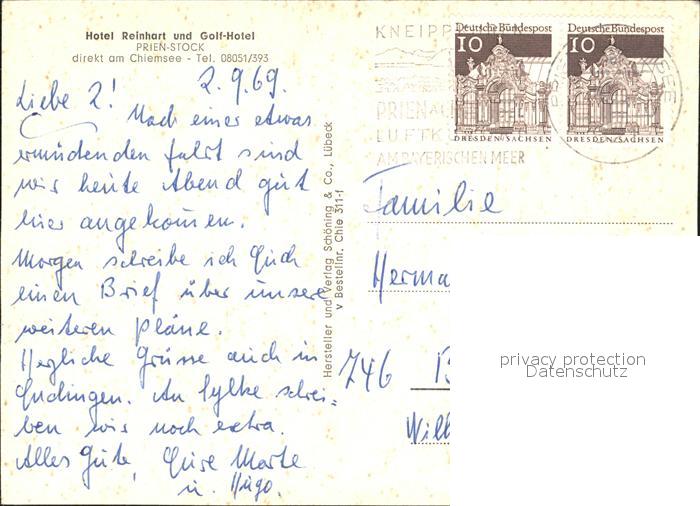 Hotel Reinhart und Golf-Hotel
PRIEN-STOCK
direkt am Chiemsee - Tel. 08051/393
2.9.69.
Liebe 2!
Nach einer etwas
ermüdenden Fahrt sind
wir heute Abend gut
hier angekommen.
Morgen schreibe ich Euch
einen Brief über unsere
weiteren Pläne.
Herzliche Grüsse auch in
Endingen. An Sylke schrei=
ben wir noch extra.
Alles Gute, Eure Marte
u. Hugo.
Hersteller und Verlag Schöning & Co., Lübeck
v Bestellnr. Chie 311-f
KNEIPP
PRIEN A
LUFTK
AM BAYERISCHEN MEER
Deutsche Bundespost
10
DRESDEN/SACHSEN
Deutsche Bundespost
10
DRESDEN/SACHSEN
Familie
Herma
746
Wilh
privacy protection
Datenschutz